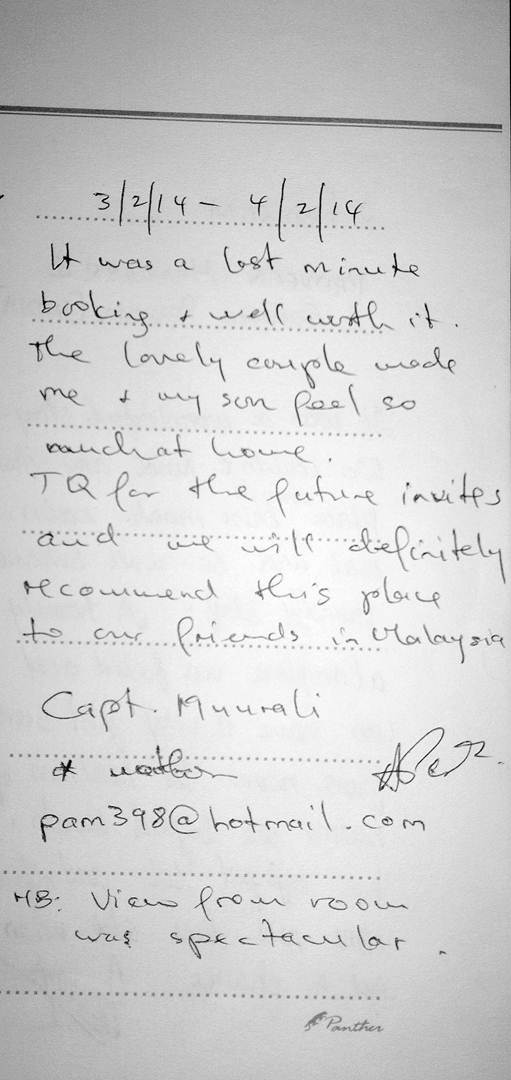 3/2/14 - 4/2/14
It was a last minute
booking & well worth it.
The lovely couple made
me & my son feel so
much at home.
TQ for the future invites
and we will definitely
recommend this place
to our friends in Malaysia
Capt. Muurali
*
pam398@hotmail.com
NB: View from room
was spectacular.
Panther